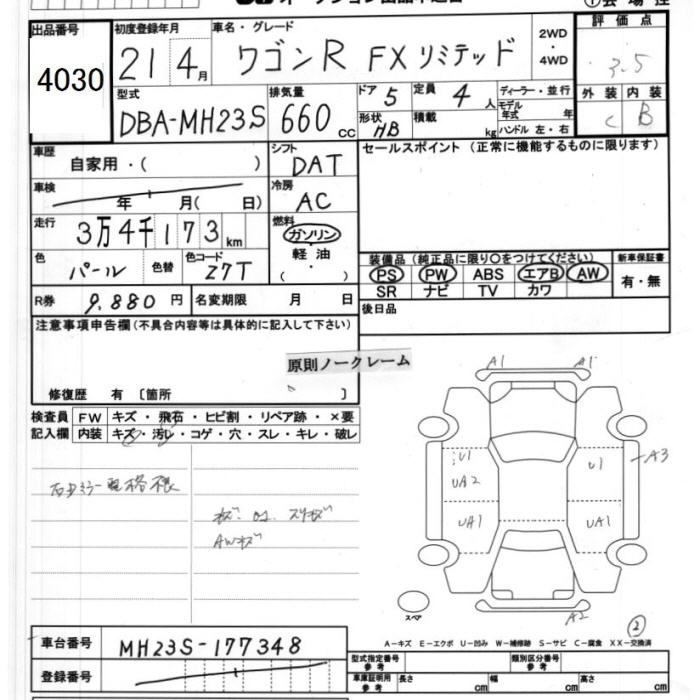 出品番号 初度登録年月 車名・グレード 評価点
4030 21 4月 ワゴンR FXリミテッド 2WD・4WD 3.5
型式 排気量 ドア 5 定員 4人 ディーラー・並行 外装 内装
DBA-MH23S 660cc 形状 HB 積載 kg モデル年式 年 C B
ハンドル 左・右
車歴 自家用・( ) シフト DAT セールスポイント (正常に機能するものに限ります)
車検 年 月( 日) 冷房 AC
走行 3万4千173km 燃料 ガソリン・軽油・( )
色 パール 色替 色コード Z7T 装備品 (純正品に限り○をつけてください) 新車保証書
PS PW ABS エアB AW 有・無
SR ナビ TV カワ
R券 9,880円 名変期限 月 日 後日品
注意事項申告欄(不具合内容等は具体的に記入して下さい)
原則ノークレーム
修復歴 有 〔箇所 〕
検査員記入欄 FW キズ・飛石・ヒビ割・リペア跡・×要
内装 キズ・汚レ・コゲ・穴・スレ・キレ・破レ
A1 A1
U1 U1 A3
UA2
UA1 UA1
AWキズ
スペア A2
②
A-キズ E-エクボ U-凹み W-補修跡 S-サビ C-腐食 XX-交換済
車台番号 MH23S-177348 型式指定番号 参考 類別区分番号 参考
登録番号 車庫証明用 参考 長さ cm 幅 cm 高さ cm